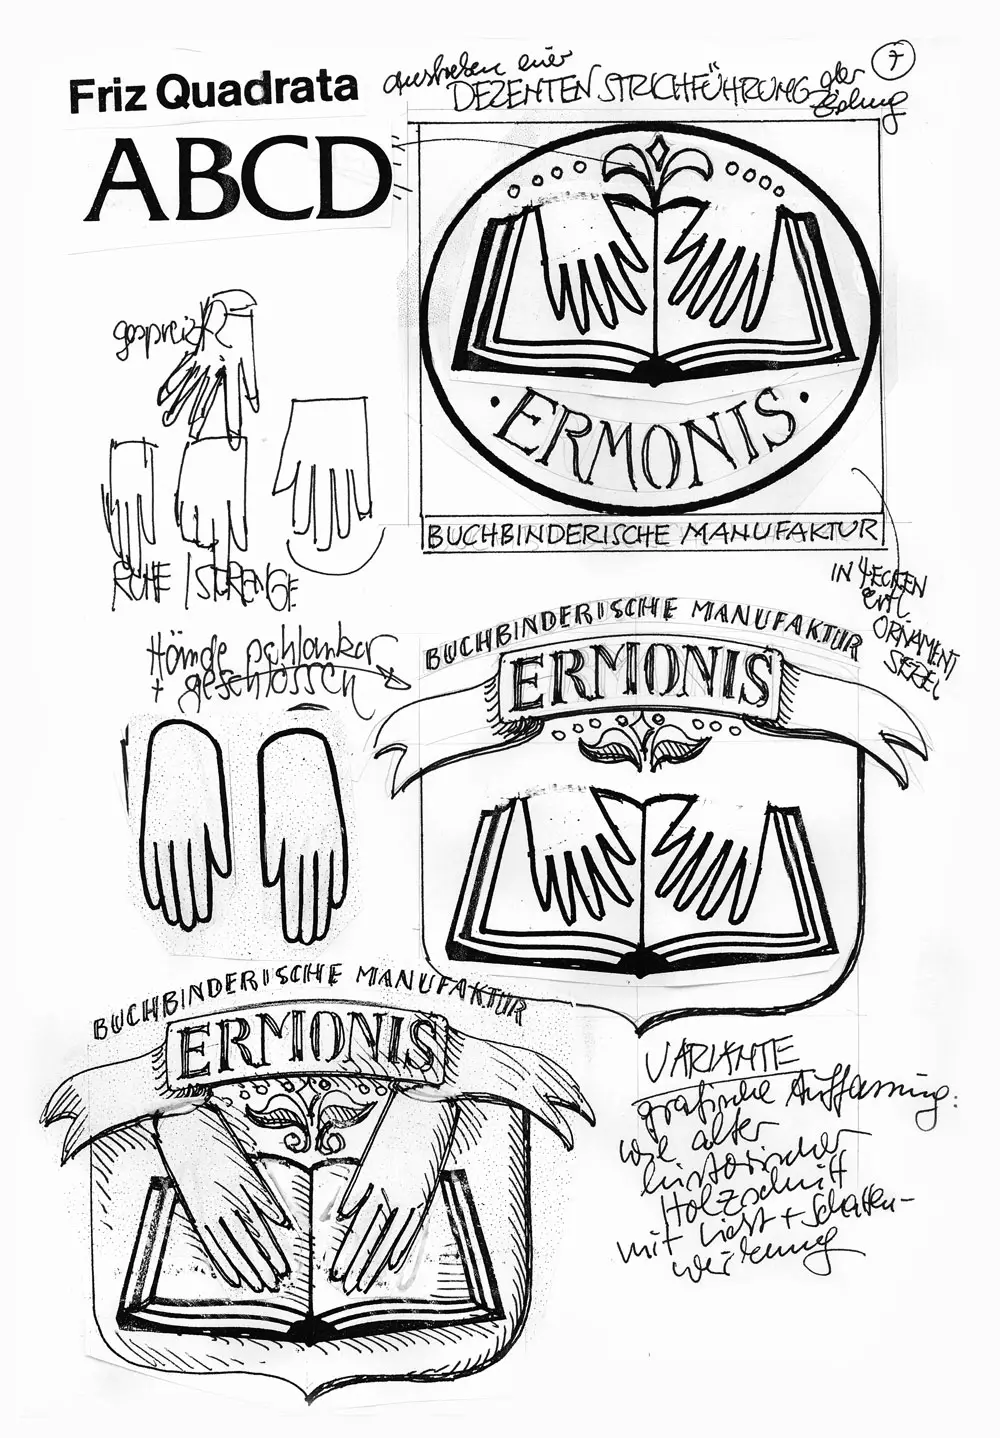 Friz Quadrata
ABCD
einer
DEZENTEN STRICHFÜHRUNG der
7
· ERMONIS ·
BUCHBINDERISCHE MANUFAKTUR
gespreizt
RUHE / STRENGE
IN 4 ECKEN
evtl.
ORNAMENT
Hände schlanker
+ geschlossen
BUCHBINDERISCHE MANUFAKTUR
ERMONIS
BUCHBINDERISCHE MANUFAKTUR
ERMONIS
VARIANTE
grafische Auffassung:
wie alter
historischer
Holzschnitt
mit Licht + Schatten-
wirkung